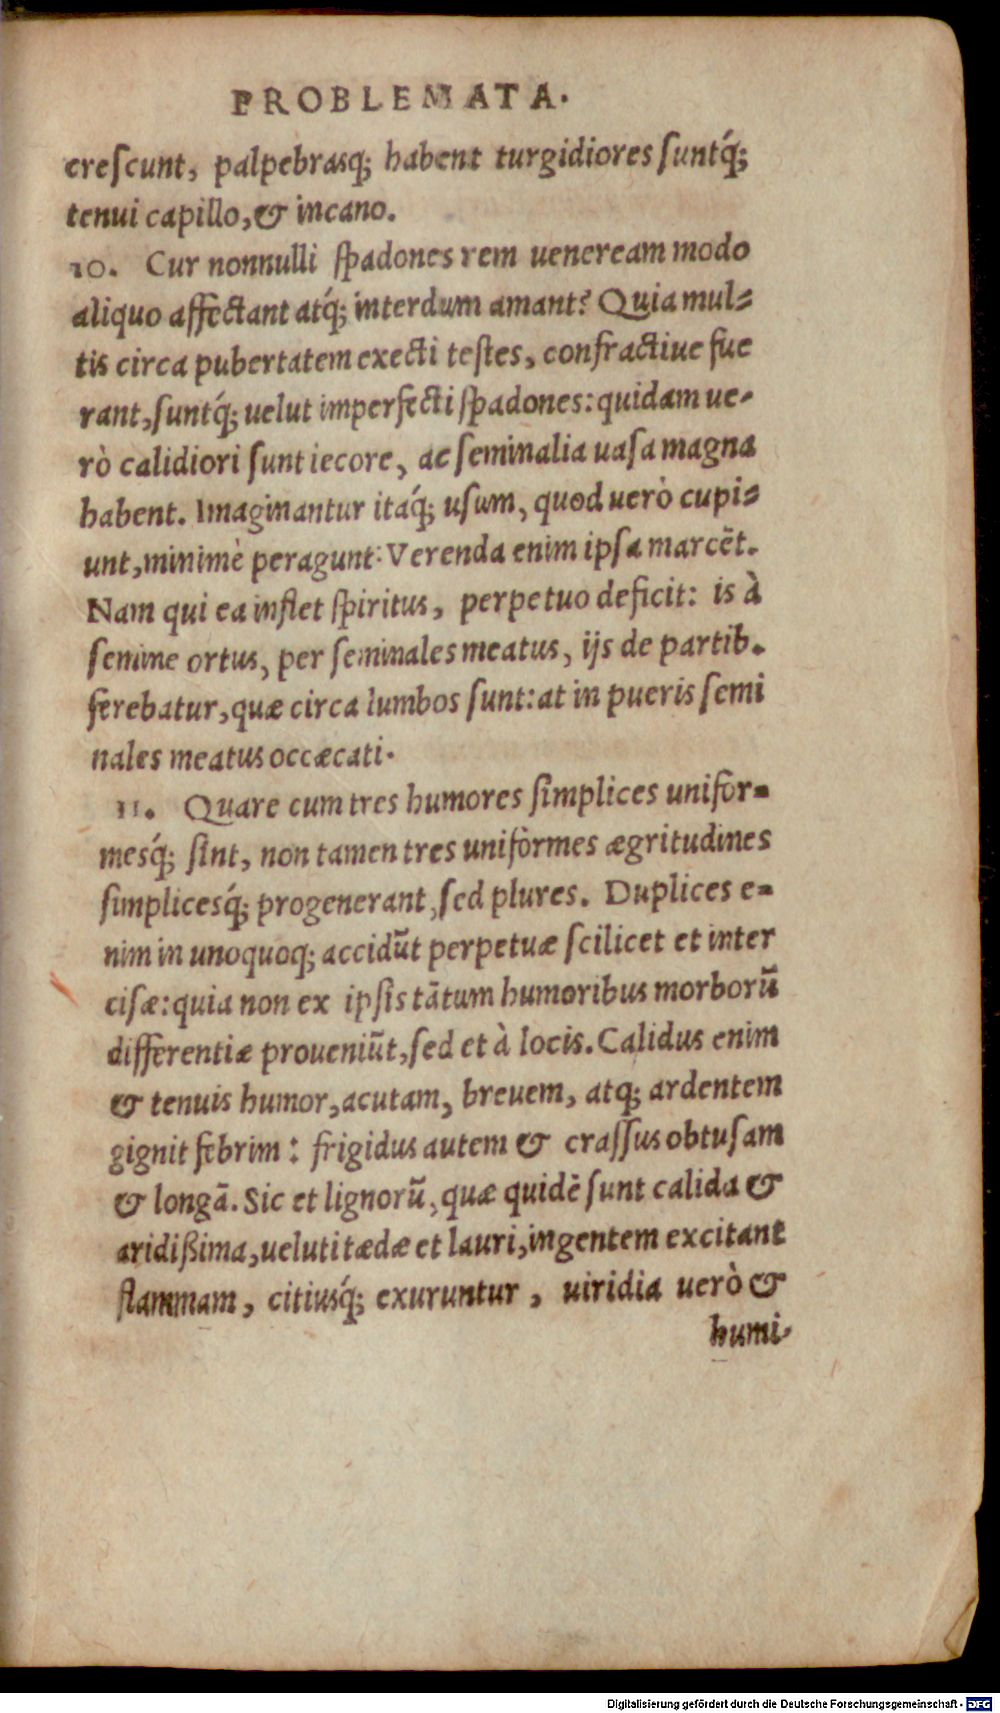 PROBLEMATA.
creſcunt, palpebrasq́; habent turgidiores ſuntq́;
tenui capillo, & incano.
10. Cur nonnulli ſpadones rem ueneream modo
aliquo affectant atq́; interdum amant? Quia mul-
tis circa pubertatem execti teſtes, confractiue fue
rant, ſuntq́; uelut imperfecti ſpadones: quidam ue-
rò calidiori ſunt iecore, ac ſeminalia uaſa magna
habent. Imaginantur itaq́; uſum, quod uerò cupi-
unt, minimè peragunt: Verenda enim ipſa marcēt.
Nam qui ea inflet ſpiritus, perpetuo deficit: is à
ſemine ortus, per ſeminales meatus, ijs de partib.
ferebatur, quæ circa lumbos ſunt: at in pueris ſemi
nales meatus occæcati.
11. Quare cum tres humores ſimplices unifor-
mesq́; ſint, non tamen tres uniformes ægritudines
ſimplicesq́; progenerant, ſed plures. Duplices e-
nim in unoquoq; accidūt perpetuæ ſcilicet et inter
ciſæ: quia non ex ipſis tātum humoribus morborū
differentiæ proueniūt, ſed et à locis. Calidus enim
& tenuis humor, acutam, breuem, atq; ardentem
gignit febrim: frigidus autem & craſſus obtuſam
& longā. Sic et lignorū, quæ quidē ſunt calida &
aridißima, ueluti tædæ et lauri, ingentem excitant
flammam, citiusq́; exuruntur, uiridia uerò &
humi-
Digitalisierung gefördert durch die Deutsche Forschungsgemeinschaft - DFG